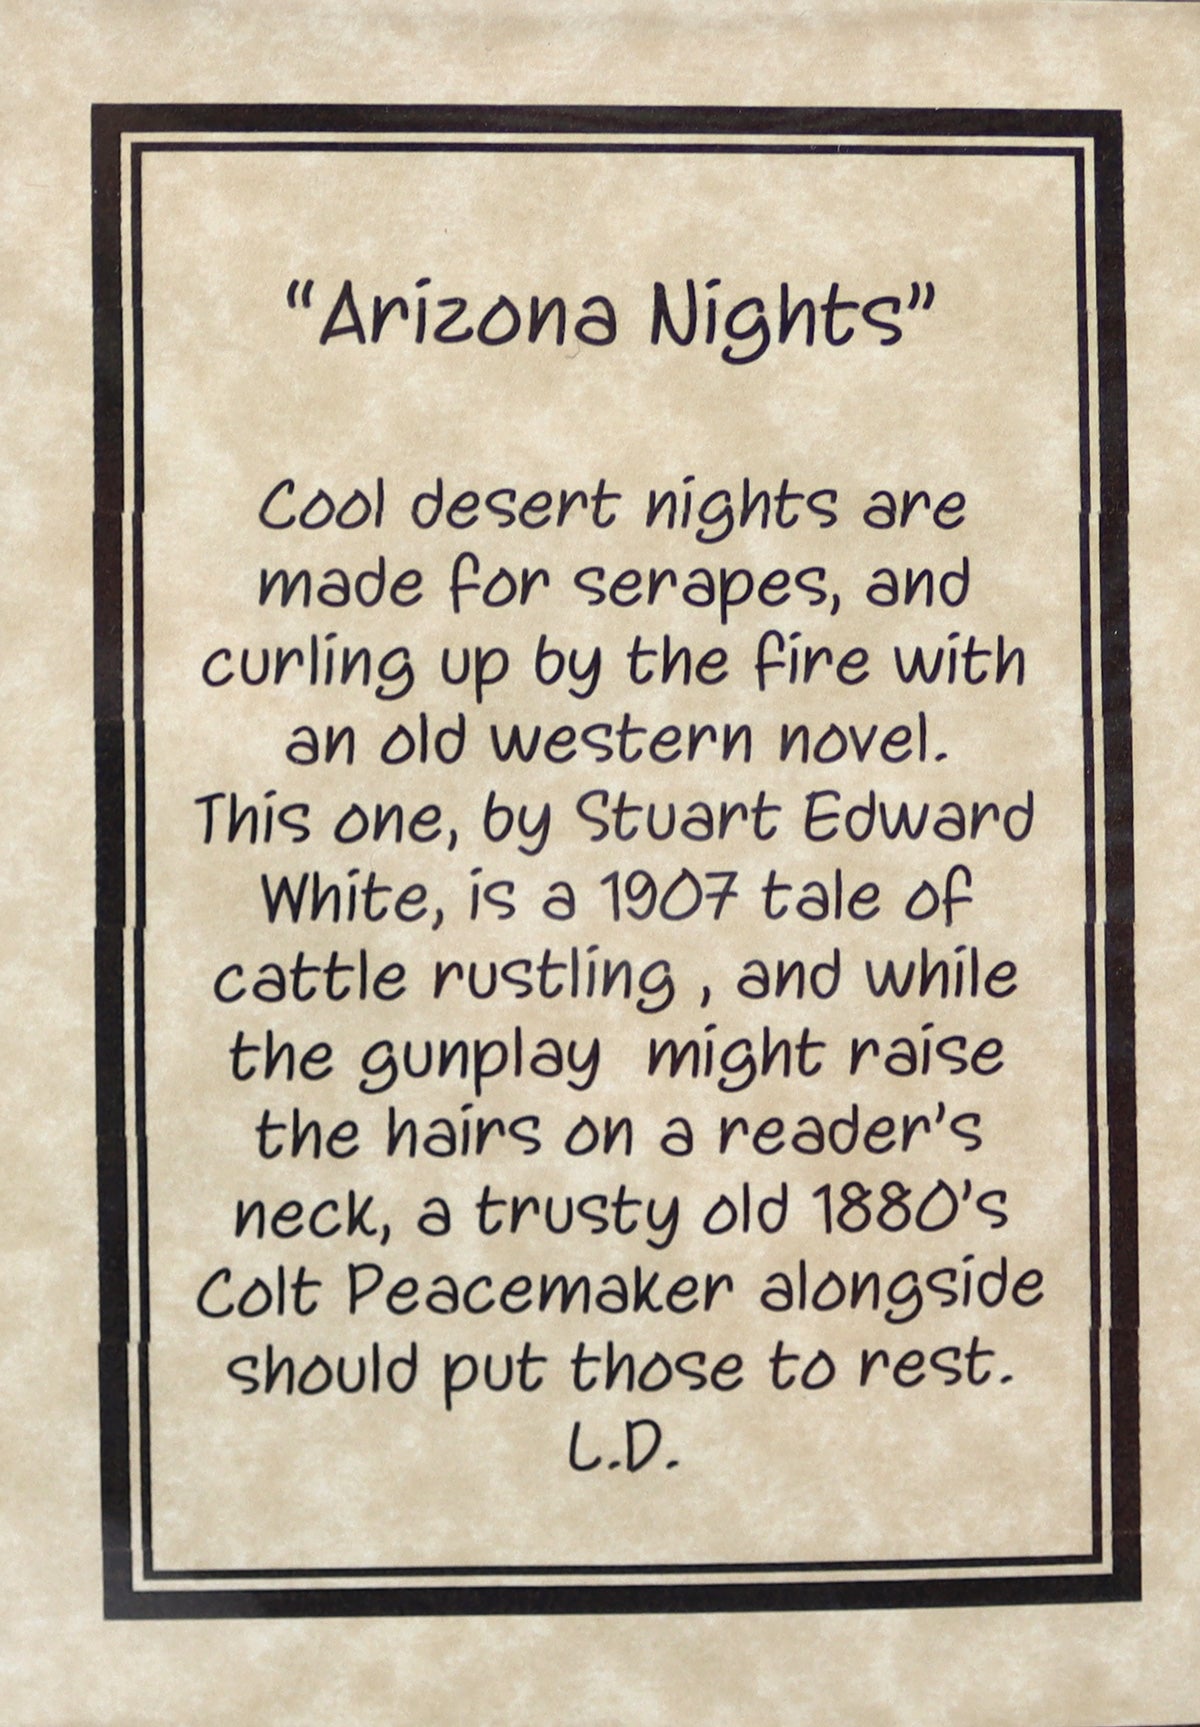 “Arizona Nights”
Cool desert nights are
made for serapes, and
curling up by the fire with
an old western novel.
This one, by Stuart Edward
White, is a 1907 tale of
cattle rustling , and while
the gunplay  might raise
the hairs on a reader’s
neck, a trusty old 1880’s
Colt Peacemaker alongside
should put those to rest.
L.D.